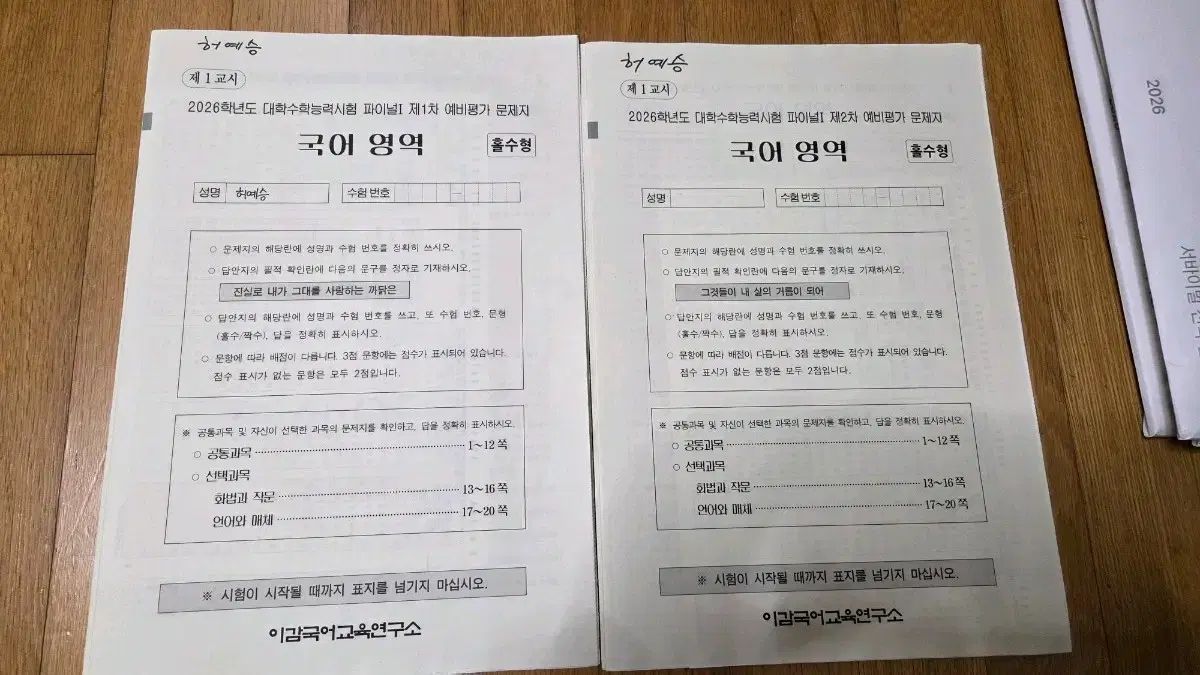 허예승
제 1 교시
2026학년도 대학수학능력시험 파이널Ⅰ 제1차 예비평가 문제지
국어 영역
홀수형
성명 허예승 수험 번호 –
○ 문제지의 해당란에 성명과 수험 번호를 정확히 쓰시오.
○ 답안지의 필적 확인란에 다음의 문구를 정자로 기재하시오.
진실로 내가 그대를 사랑하는 까닭은
○ 답안지의 해당란에 성명과 수험 번호를 쓰고, 또 수험 번호, 문형
(홀수/짝수), 답을 정확히 표시하시오.
○ 문항에 따라 배점이 다릅니다. 3점 문항에는 점수가 표시되어 있습니다.
점수 표시가 없는 문항은 모두 2점입니다.
※ 공통과목 및 자신이 선택한 과목의 문제지를 확인하고, 답을 정확히 표시하시오.
○ 공통과목 1~12 쪽
○ 선택과목
화법과 작문 13~16 쪽
언어와 매체 17~20 쪽
※ 시험이 시작될 때까지 표지를 넘기지 마십시오.
이감국어교육연구소
허예승
제 1 교시
2026학년도 대학수학능력시험 파이널Ⅰ 제2차 예비평가 문제지
국어 영역
홀수형
성명 수험 번호 –
○ 문제지의 해당란에 성명과 수험 번호를 정확히 쓰시오.
○ 답안지의 필적 확인란에 다음의 문구를 정자로 기재하시오.
그것들이 내 삶의 거름이 되어
○ 답안지의 해당란에 성명과 수험 번호를 쓰고, 또 수험 번호, 문형
(홀수/짝수), 답을 정확히 표시하시오.
○ 문항에 따라 배점이 다릅니다. 3점 문항에는 점수가 표시되어 있습니다.
점수 표시가 없는 문항은 모두 2점입니다.
※ 공통과목 및 자신이 선택한 과목의 문제지를 확인하고, 답을 정확히 표시하시오.
○ 공통과목 1~12 쪽
○ 선택과목
화법과 작문 13~16 쪽
언어와 매체 17~20 쪽
※ 시험이 시작될 때까지 표지를 넘기지 마십시오.
이감국어교육연구소
2026